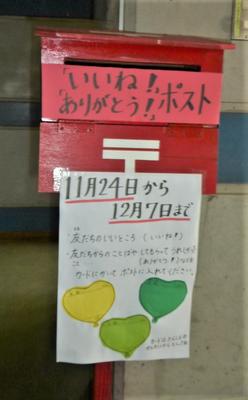 「いいね!」
「ありがとう!」ポスト
11月24日から
12月7日まで
・友だちのいいところ (いいね!)
・友だちからのことばや してもらって うれしかった
こと (ありがとう!)などを
カードにかいて ポストに入れてください。